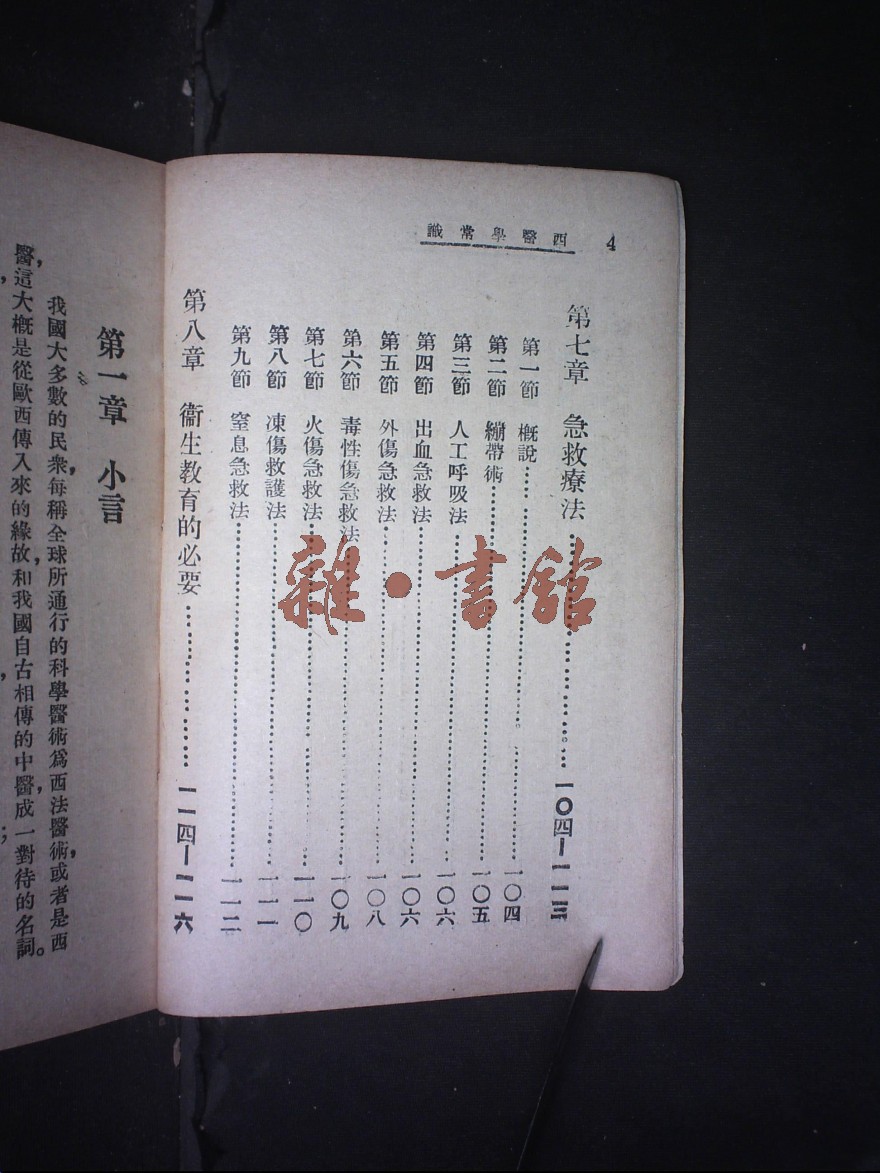 4　西醫學常識
第七章　急救療法……一〇四—一一三
第一節　概說……一〇四
第二節　繃帶術……一〇五
第三節　人工呼吸法……一〇六
第四節　出血急救法……一〇六
第五節　外傷急救法……一〇八
第六節　毒性傷急救法……一〇九
第七節　火傷急救法……一一〇
第八節　凍傷救護法……一一一
第九節　窒息急救法……一一二
第八章　衞生教育的必要……一一四—一一六
第一章　小言
我國大多數的民衆，每稱全球所通行的科學醫術，爲西法醫術，或者是西
醫，這大概是從歐西傳入來的緣故，和我國自古相傳的中醫，成一對待的名詞。
雜·書館